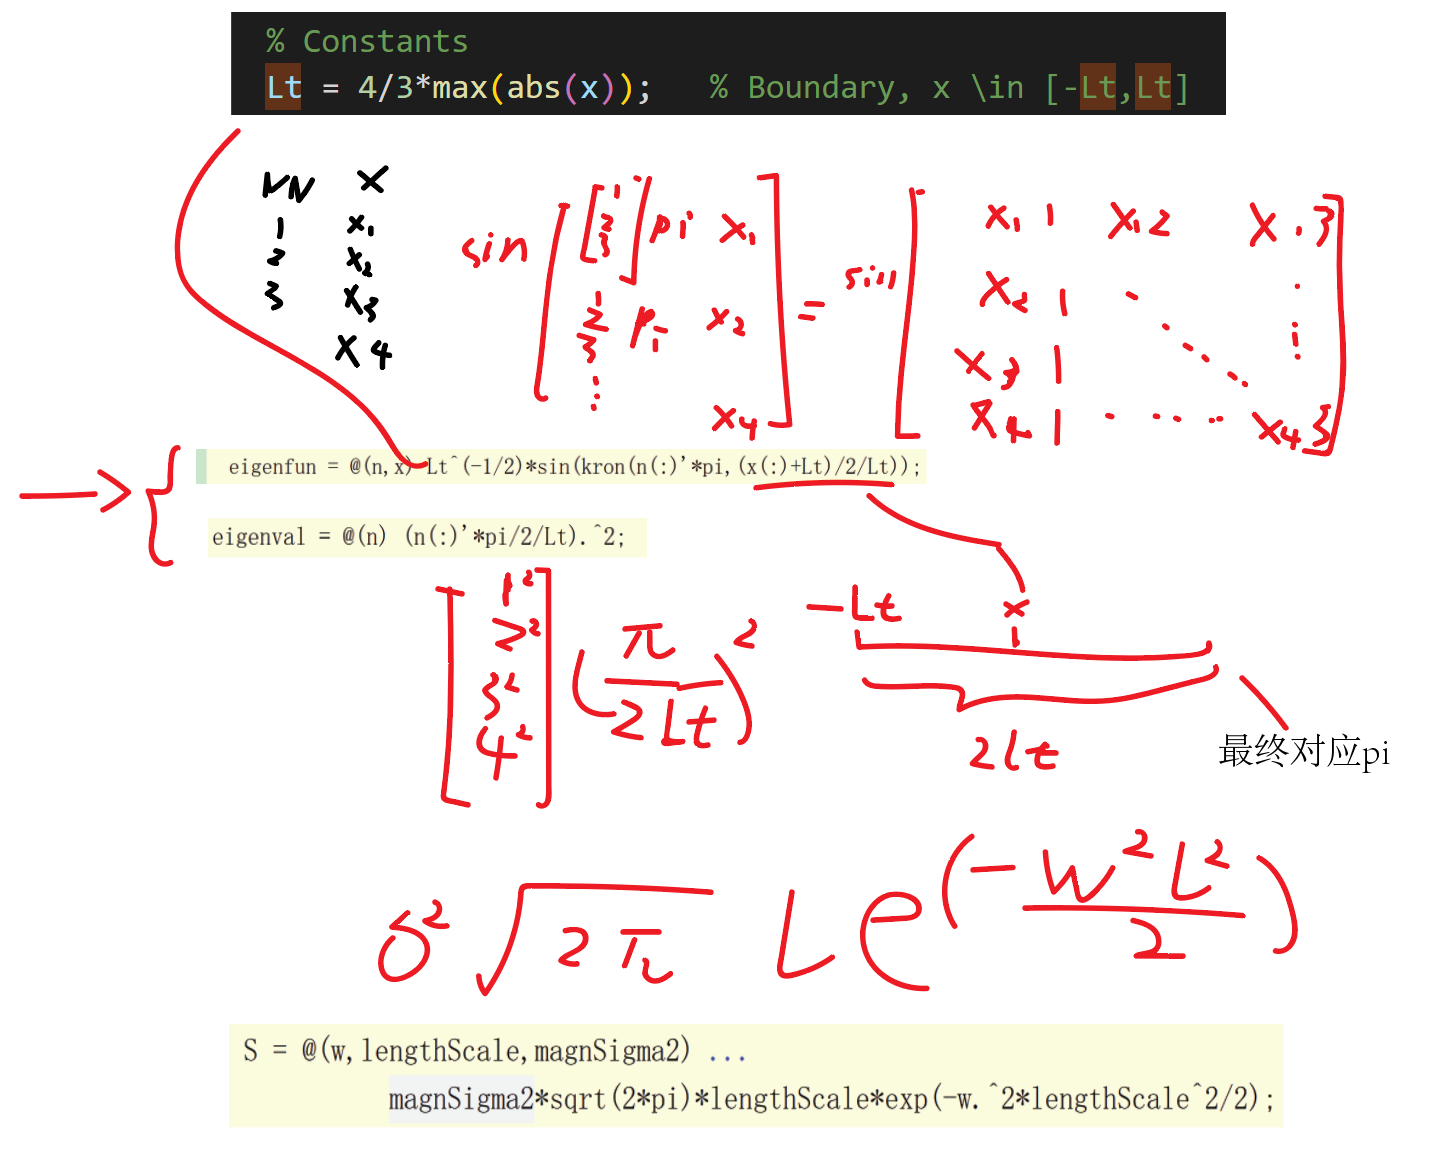 % Constants
Lt = 4/3*max(abs(x));   % Boundary, x \in [-Lt,Lt]
NN X
1 x₁
2 x₂
3 x₃
x4
sin [ [1 2 3] pi x₁
1 2 3 pi x₂
⋮ x4 ] = sin [ x₁1 x₁2 x₁3
x₂1 ⋱ ⋮
x₃1
x₄1 ..... x₄3 ]
eigenfun = @(n,x) Lt^(-1/2)*sin(kron(n(:)'*pi,(x(:)+Lt)/2/Lt));
eigenval = @(n) (n(:)'*pi/2/Lt).^2;
[ 1² 2² 3² 4² ] (π / 2Lt)²
-Lt x
2lt
最终对应pi
σ² √2π L e^(-w²L²/2)
S = @(w,lengthScale,magnSigma2) ...
magnSigma2*sqrt(2*pi)*lengthScale*exp(-w.^2*lengthScale^2/2);